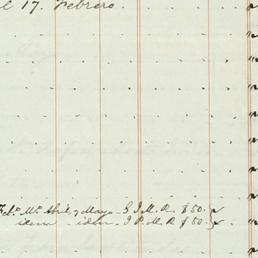 l 17. Febrero.
Feb.o M.o Abril y Mayo G. J. M. R. $50.
idem idem J. P. M. R. $50.